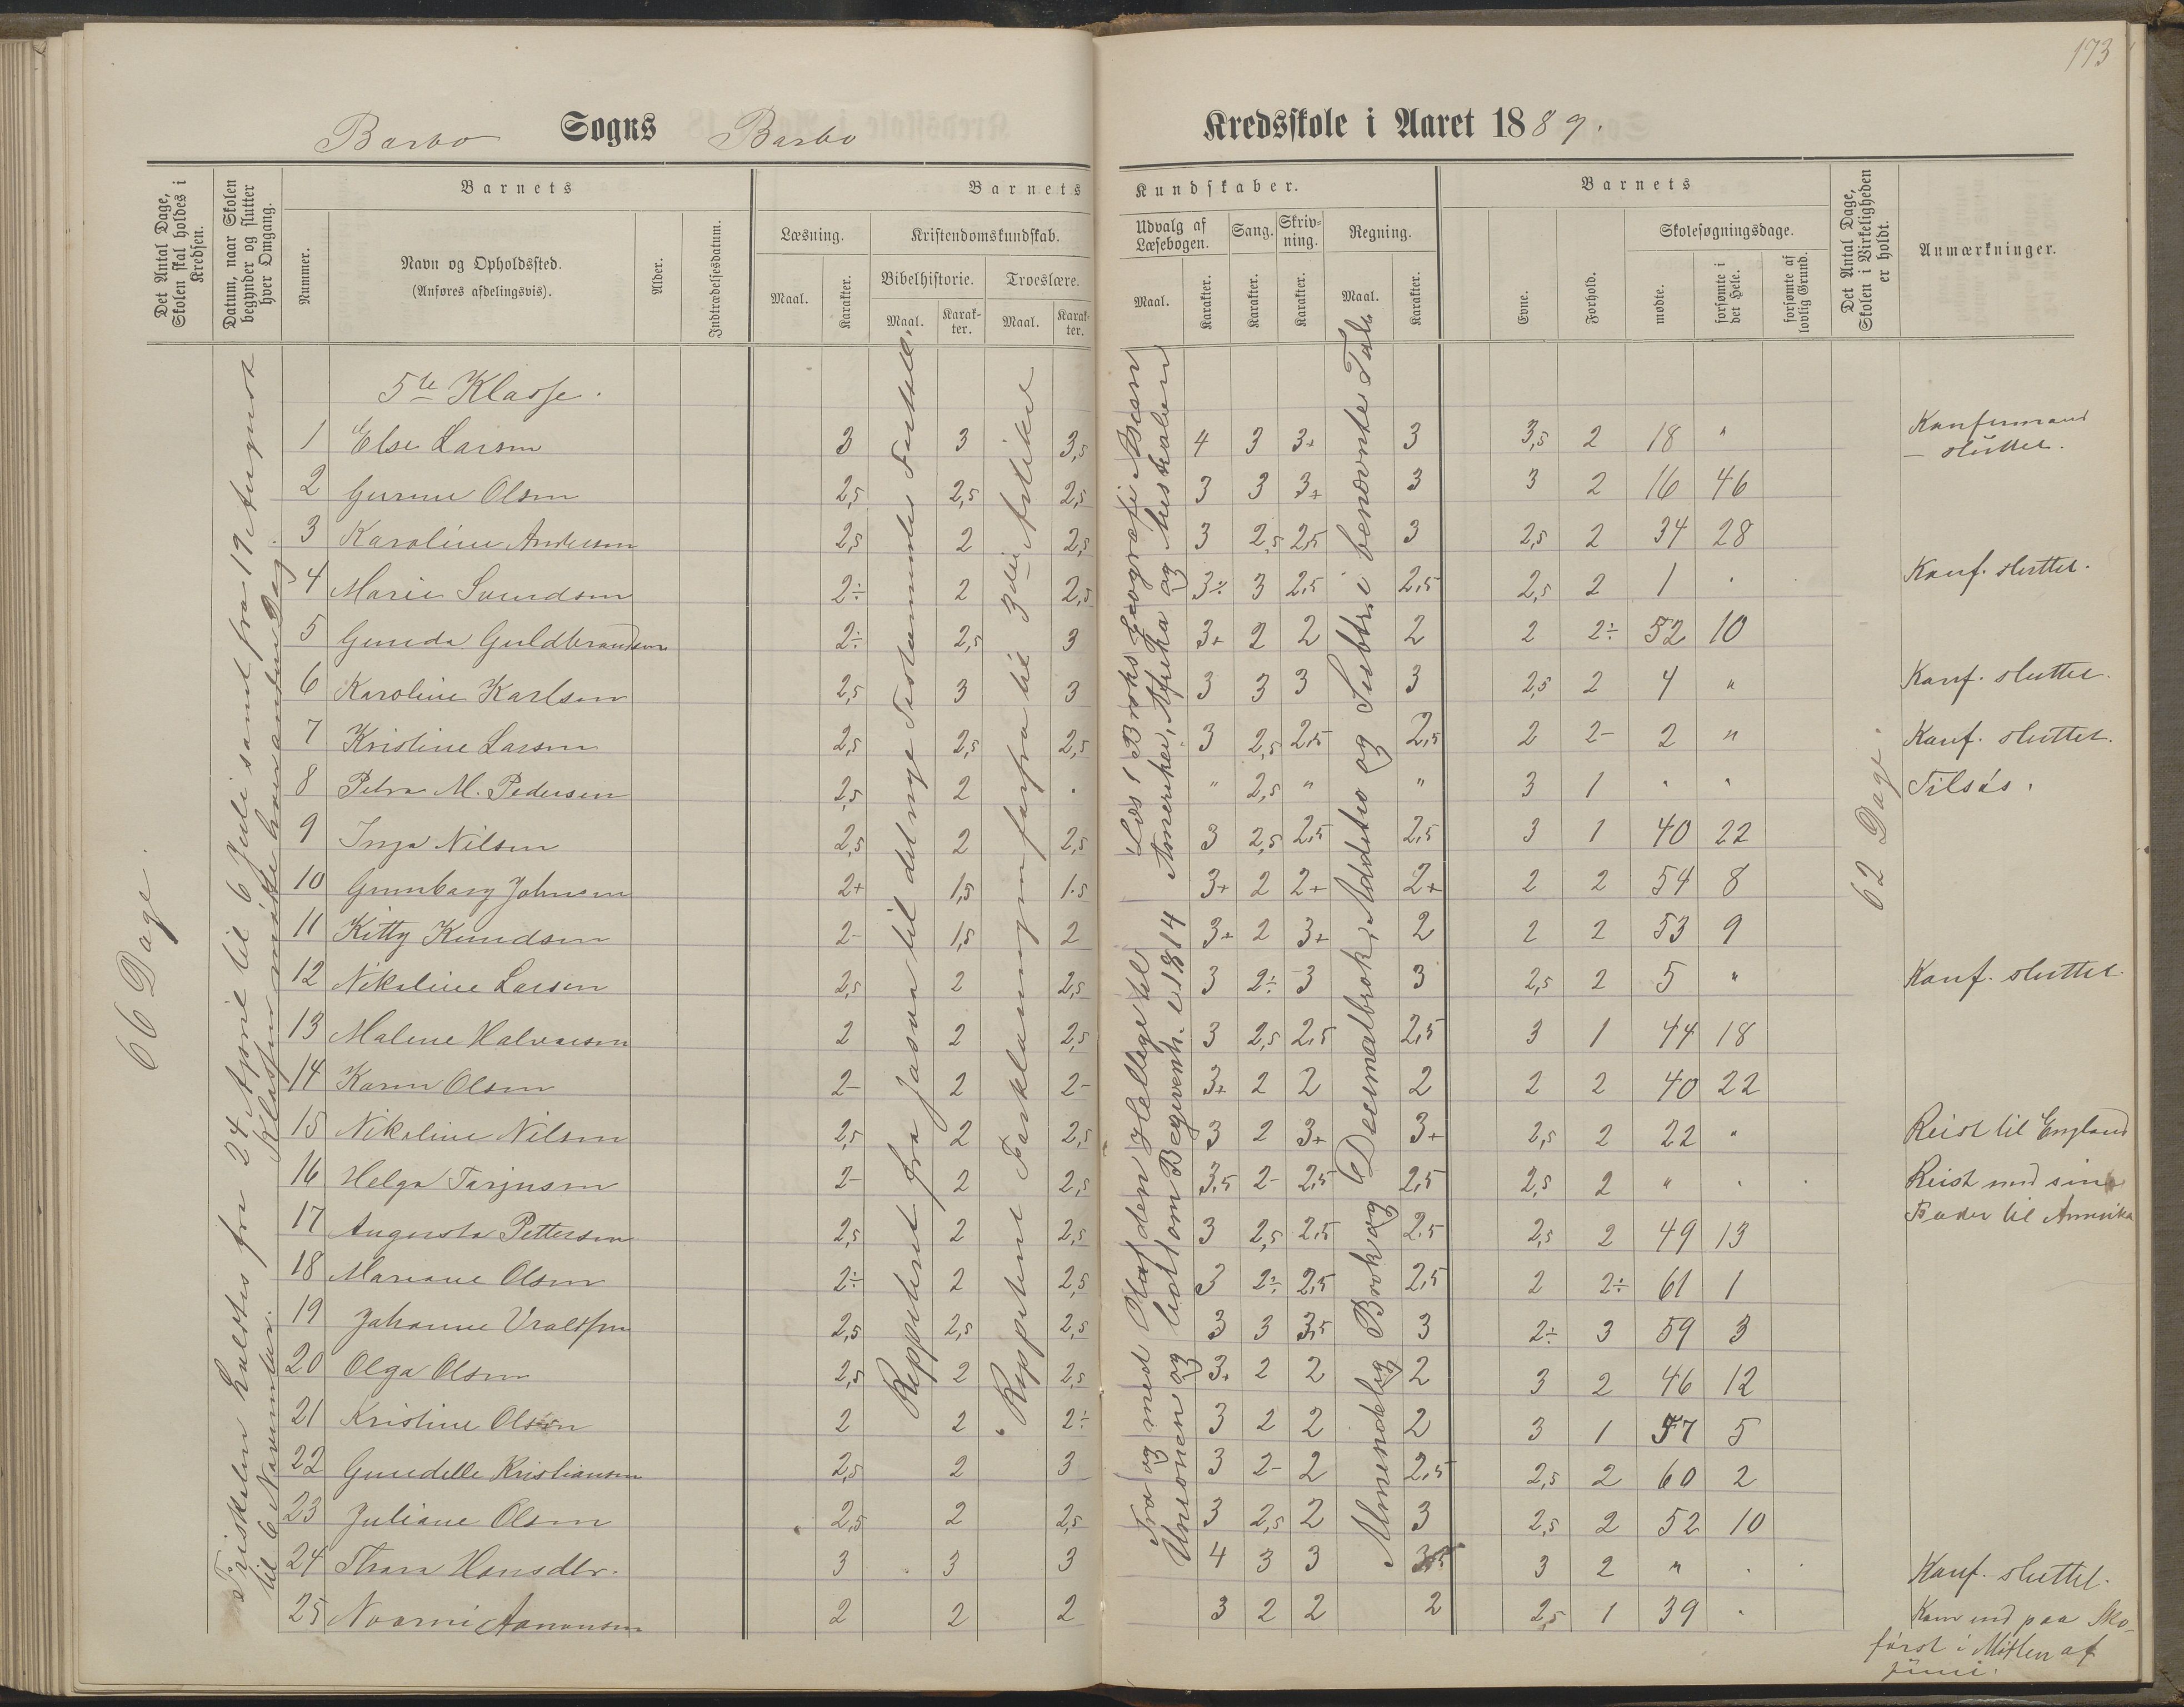 173
Barbo Sogns Barbo Kredsskole i Aaret 1889.
Det Antal Dage, Skolen skal holdes i Kredsen.
Datum, naar Skolen begynder og slutter hver Omgang.
Barnets
Nummer.
Navn og Opholdssted.
(Anføres afdelingsvis).
Alder.
Indtrædelsesdatum.
Barnets Kundskaber.
Læsning.
Maal.
Karakter.
Kristendomskundskab.
Bibelhistorie.
Maal.
Karakter.
Troeslære.
Maal.
Karakter.
Udvalg af Læsebogen.
Maal.
Karakter.
Sang.
Karakter.
Skrivning.
Karakter.
Regning.
Maal.
Karakter.
Barnets
Evne.
Forhold.
Skolesøgningsdage.
mødte.
forsømte i det Hele.
forsømte af lovlig Grund.
Det Antal Dage, Skolen i Virkeligheden er holdt.
Anmærkninger.
66 Dage.
fra 24 April til 6 Juli samt fra 19 August
til 6 November.
Reppeteret fra Josva til det nye Testammente
Reppeteret Forklaringen forfra til 3die Artikel
Fra og med Olaf den Hellige til
Unionen og lidt om Begivenh. i 1814
Læst i Broks Geografi
Amerika, Afrika og Australien
Almindelig Brok og Decimalbrok, Additio og Subtr. i benævnte Tal.
62 Dage.
5te Klasse.
1 Else Larsen 3 3 3,5 4 3 3+ 3 3,5 2 18 " Konfirmand
- sluttet.
2 Gunnu Olsen 2,5 2,5 2,5 3 3 3+ 3 3 2 16 46
3 Karoline Andersen 2,5 2 2,5 3 2,5 2,5 3 2,5 2 34 28
4 Marie Svendsen 2÷ 2 2,5 3÷ 3 2,5 2,5 2,5 2 1 . Konf. sluttet.
5 Gunda Guldbrandsen 2÷ 2,5 3 3+ 2 2 2 2 2÷ 52 10
6 Karoline Karlsen 2,5 3 3 3 3 3 3 2,5 2 4 " Konf. sluttet.
7 Kristine Larsen 2,5 2,5 2,5 3 2,5 2,5 2,5 2 2- 2 " Konf. sluttet.
8 Petra M. Pedersen 2,5 2 . " 2,5 " " 3 1 " " Tilsøs.
9 Inga Nilsen 2,5 2 2,5 3 2,5 2,5 2,5 3 1 40 22
10 Gunborg Johnsen 2+ 1,5 1.5 3+ 2 2+ 2+ 2 2 54 8
11 Kitty Knudsen 2- 1,5 2 3+ 2 3+ 2 2 2 53 9
12 Nikoline Larsen 2,5 2 2,5 3 2÷ 3 3 2,5 2 5 " Konf. sluttet.
13 Malene Halvorsen 2 2 2,5 3 2,5 2,5 2,5 3 1 44 18
14 Karen Olsen 2- 2 2- 3+ 2 2 2 2 2 40 22
15 Nikoline Nilsen 2,5 2 2,5 3 2 3+ 3+ 2,5 2 22 " Reist til England
16 Helga Terjesen 2- 2 2,5 3,5 2- 2,5 2,5 2,5 2 " . Reist med sine
17 Augusta Pettersen 2,5 2 2,5 3 2,5 2,5 2,5 2,5 2 49 13 Fader til Amerika
18 Mariane Olsen 2÷ 2 2,5 3 2÷ 2,5 2,5 2 2÷ 61 1
19 Johanne Vraldsen 2,5 2,5 2,5 3 3 3,5 3 2÷ 3 59 3
20 Olga Olsen 2,5 2 2,5 3+ 2 2 2 3 2 46 12
21 Kristine Olsen 2 2 2÷ 3 2 2 2 3 1 57 5
22 Gundelle Kristiansen 2,5 2 3 3 2- 2 2,5 2,5 2 60 2
23 Juliane Olsen 2,5 2 2,5 3 2,5 2 3 2,5 2 52 10
24 Thora Hansdtr. 3 3 3 4 3 3 3,5 3 2 " . Konf. sluttet.
25 Noomi Aanonsen 2 2 2 3 2 2 2 2,5 1 39 . Kom ind paa Sko-
først i Midten af
Juni.